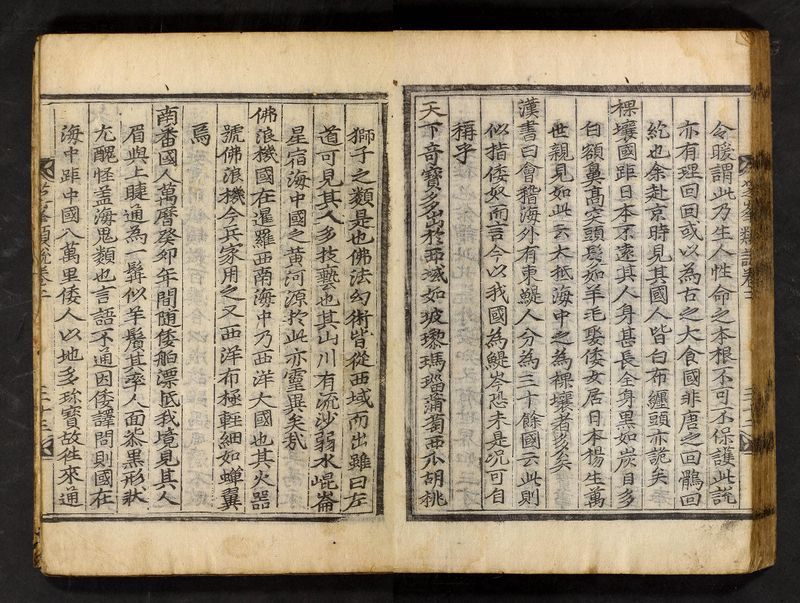 芝峯類說卷二
三十二
令暖謂此乃生人性命之本根不可不保護此說
亦有理回回或以為古之大食國非唐之回鶻回
紇也余赴京時見其國人皆白布纏頭亦詭矣
裸壤國距日本不遠其人身甚長全身黑如炭目多
白額鼻高突頭髮如羊毛娶倭女居日本楊生萬
世親見如此云大抵海中之為裸壤者多矣
漢書曰會稽海外有東鯷人分為二十餘國云此則
似指倭奴而言今以我國為鯷岑恐未是況可自
稱乎
天下奇寶多出於西域如玻瓈瑪瑙葡萄西瓜胡桃
獅子之類是也佛法幻術皆從西域而出雖曰左
道可見其人多技藝也其山川有流沙弱水崐崙
星宿海中國之黃河源於此亦靈異矣哉
佛浪機國在暹羅西南海中乃西洋大國也其火器
號佛浪機今兵家用之又西洋布極輕細如蟬翼
焉
南番國人萬曆癸卯年間隨倭舶漂抵我境見其人
眉與上睫通為一鬚似羊鬚其率人面漆黑形狀
尤醜怪盖海鬼類也言語不通因倭譯問則國在
海中距中國八萬里倭人以地多珍寶故徃來通
芝峯類說卷二
三十三